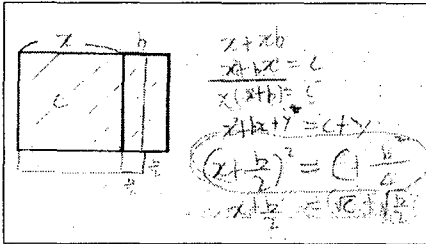 x b
c
b/2
b/2
x + xb
x² + bx = c
x(x+b) = c
x²+bx+y = c+y
(x + b/2)² = c + b²/4
x + b/2 = √c + √b/2